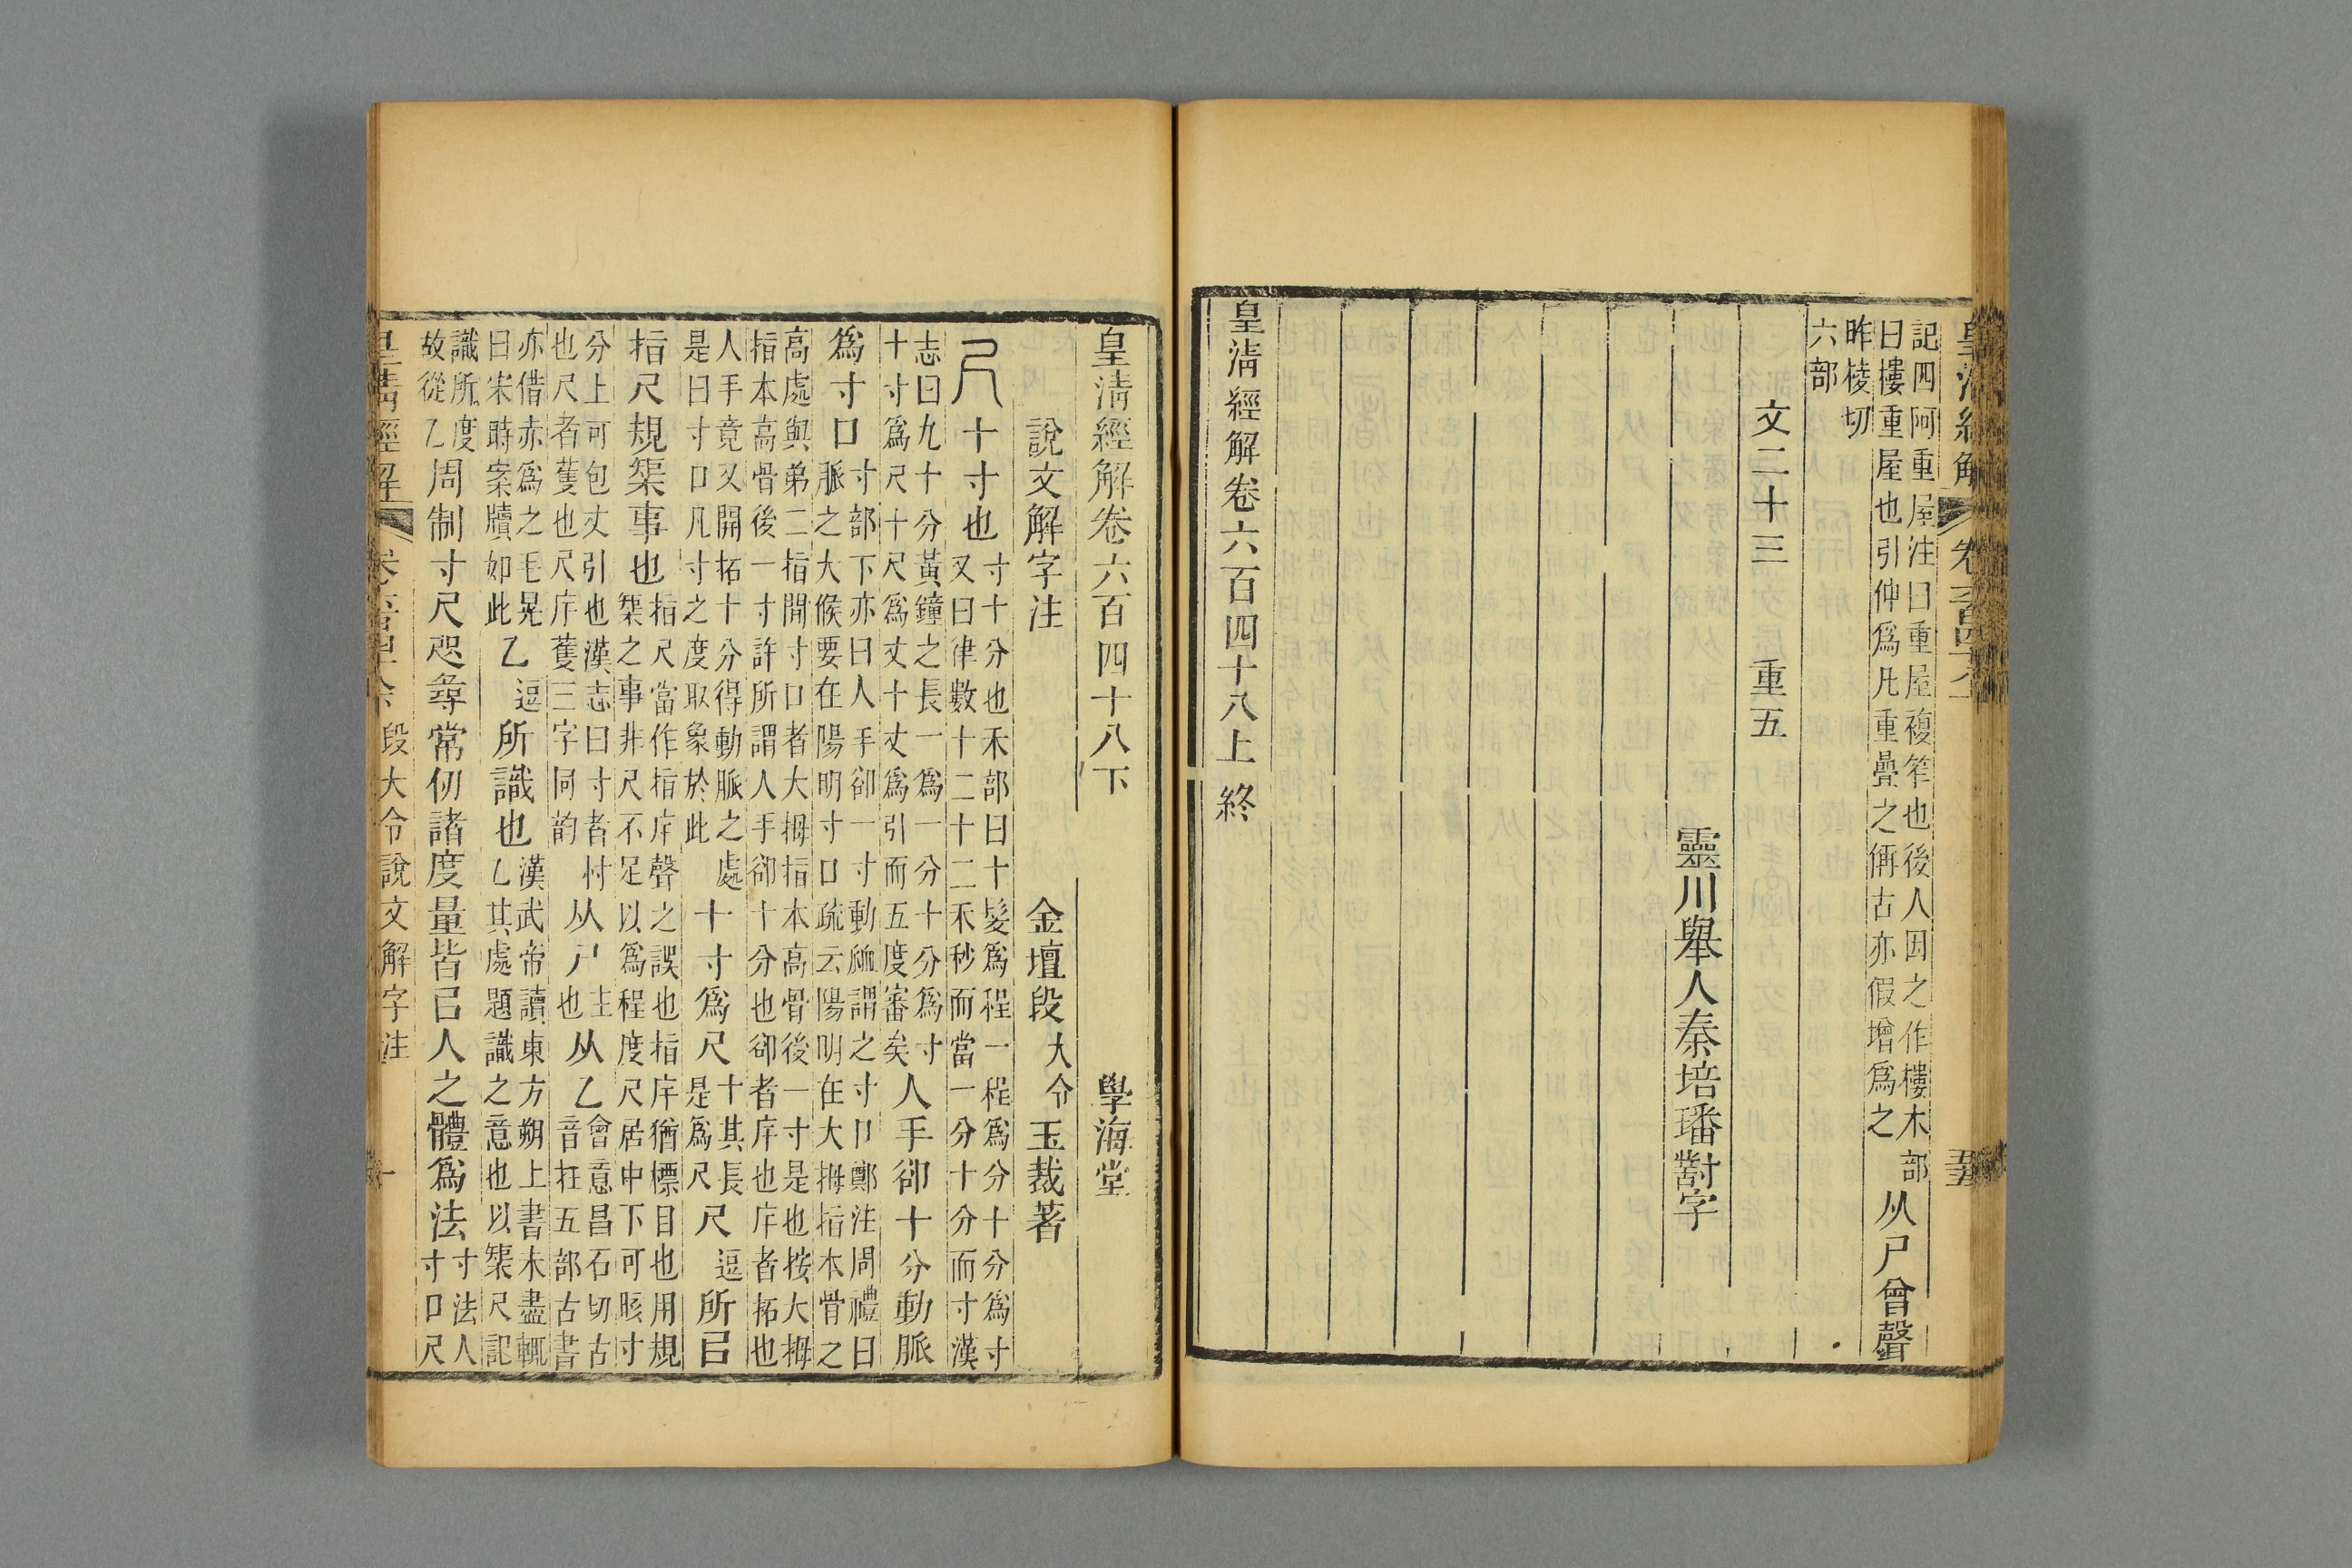 皇清經解 卷六百四十八上
記四阿重屋注曰重屋複笮也後人因之作樓木部
曰樓重屋也引伸爲凡重疊之偁古亦假增爲之
从尸曾聲
昨棱切
六部
文二十三 重五
靈川舉人秦培璠對字
皇清經解卷六百四十八上終
皇清經解卷六百四十八下 學海堂
說文解字注 金壇段大令玉裁著
尺 十寸也
寸十分也禾部曰十髮爲程一程爲分十分爲寸
又曰律數十二十二禾秒而當一分十分而寸漢
志曰九十分黃鐘之長一爲一分十分爲寸
十寸爲尺十尺爲丈十丈爲引而五度審矣
人手卻十分動脈
爲寸口
寸部下亦曰人手卻一寸動䘑謂之寸口鄭注周禮曰
脈之大候要在陽明寸口疏云陽明在大拇指本骨之
高處與弟二指閒寸口者大拇指本高骨後一寸是也按大拇
指本高骨後一寸許所謂人手卻十分也卻者㡿也㡿者拓也
人手竟又開拓十分得動脈之處
是曰寸口凡寸之度取象於此
十寸爲尺
十其長
是爲尺
尺 逗 所㠯
指尺規榘事也
指尺當作指㡿聲之誤也指㡿猶標目也用規
榘之事非尺不足以爲程度尺居中下可晐寸
分上可包丈引也漢志曰寸者忖
也尺者蒦也尺㡿蒦三字同韵
从尸
主
也
从乙
會意昌石切古
音在五部古書
亦借赤爲之毛晃
曰宋時案牘如此
乙 逗 所識也
漢武帝讀東方朔上書未盡輒
乙其處題識之意也以榘尺記
識所度
故從乙
周制寸尺咫尋常仞諸度量皆㠯人之體爲法
寸法人
寸口尺
皇清經解 段大令說文解字注 一